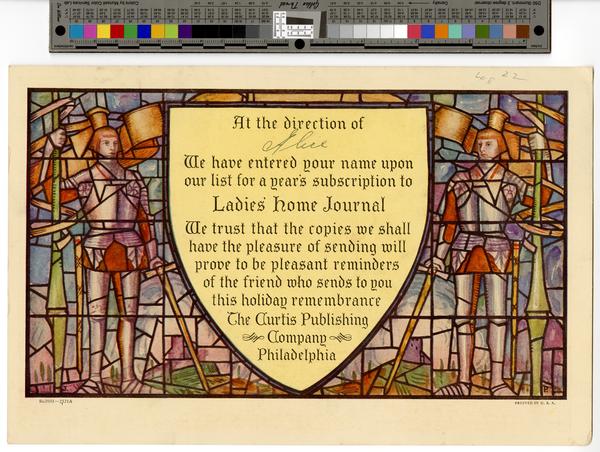 At the direction of
Alice
We have entered your name upon
our list for a year's subscription to
Ladies' Home Journal
We trust that the copies we shall
have the pleasure of sending will
prove to be pleasant reminders
of the friend who sends to you
this holiday remembrance
The Curtis Publishing
Company
Philadelphia
PRINTED IN U. S. A.